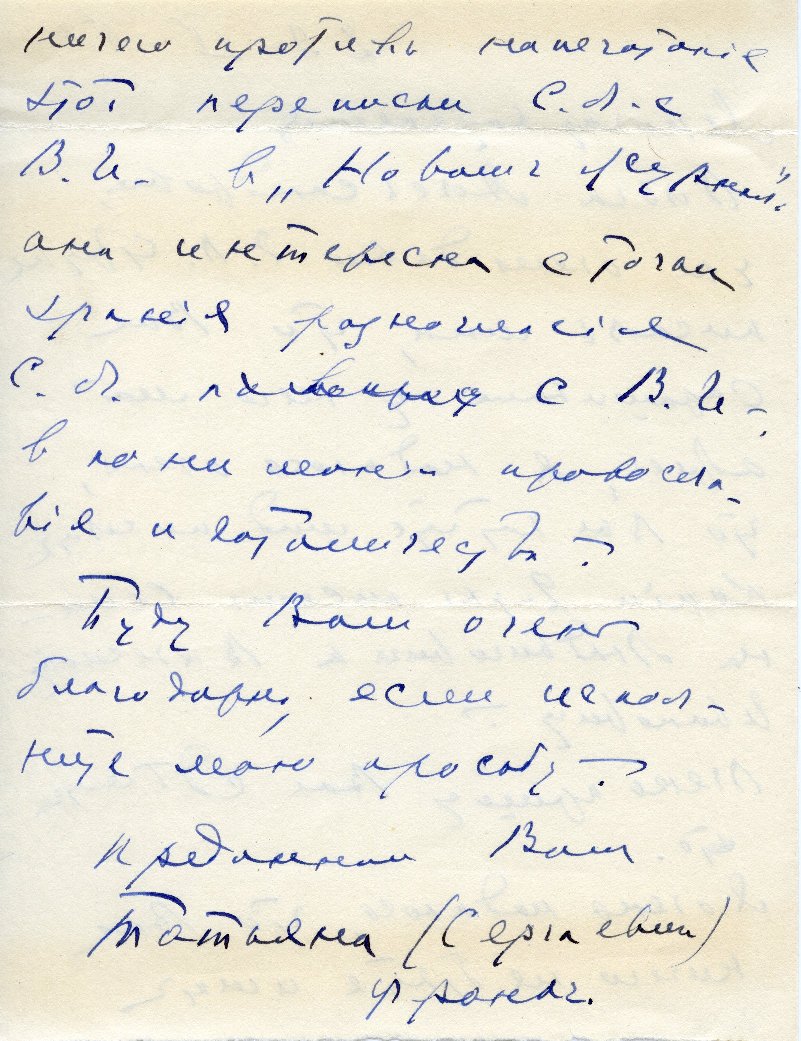 ничего противъ напечатанiя
этой переписки С. Л. с
В. И. в „Новомъ Журнал".
она интересна с точки
зрѣнiя разногласiя
С. Л. с В. И.
в пониманiи правосла-
вiя и католичества.
Буду Вам очень
благодарна, если испол-
ните мою просьбу.
Преданная Вам
Татьяна (Сергѣевна)
Франкъ.